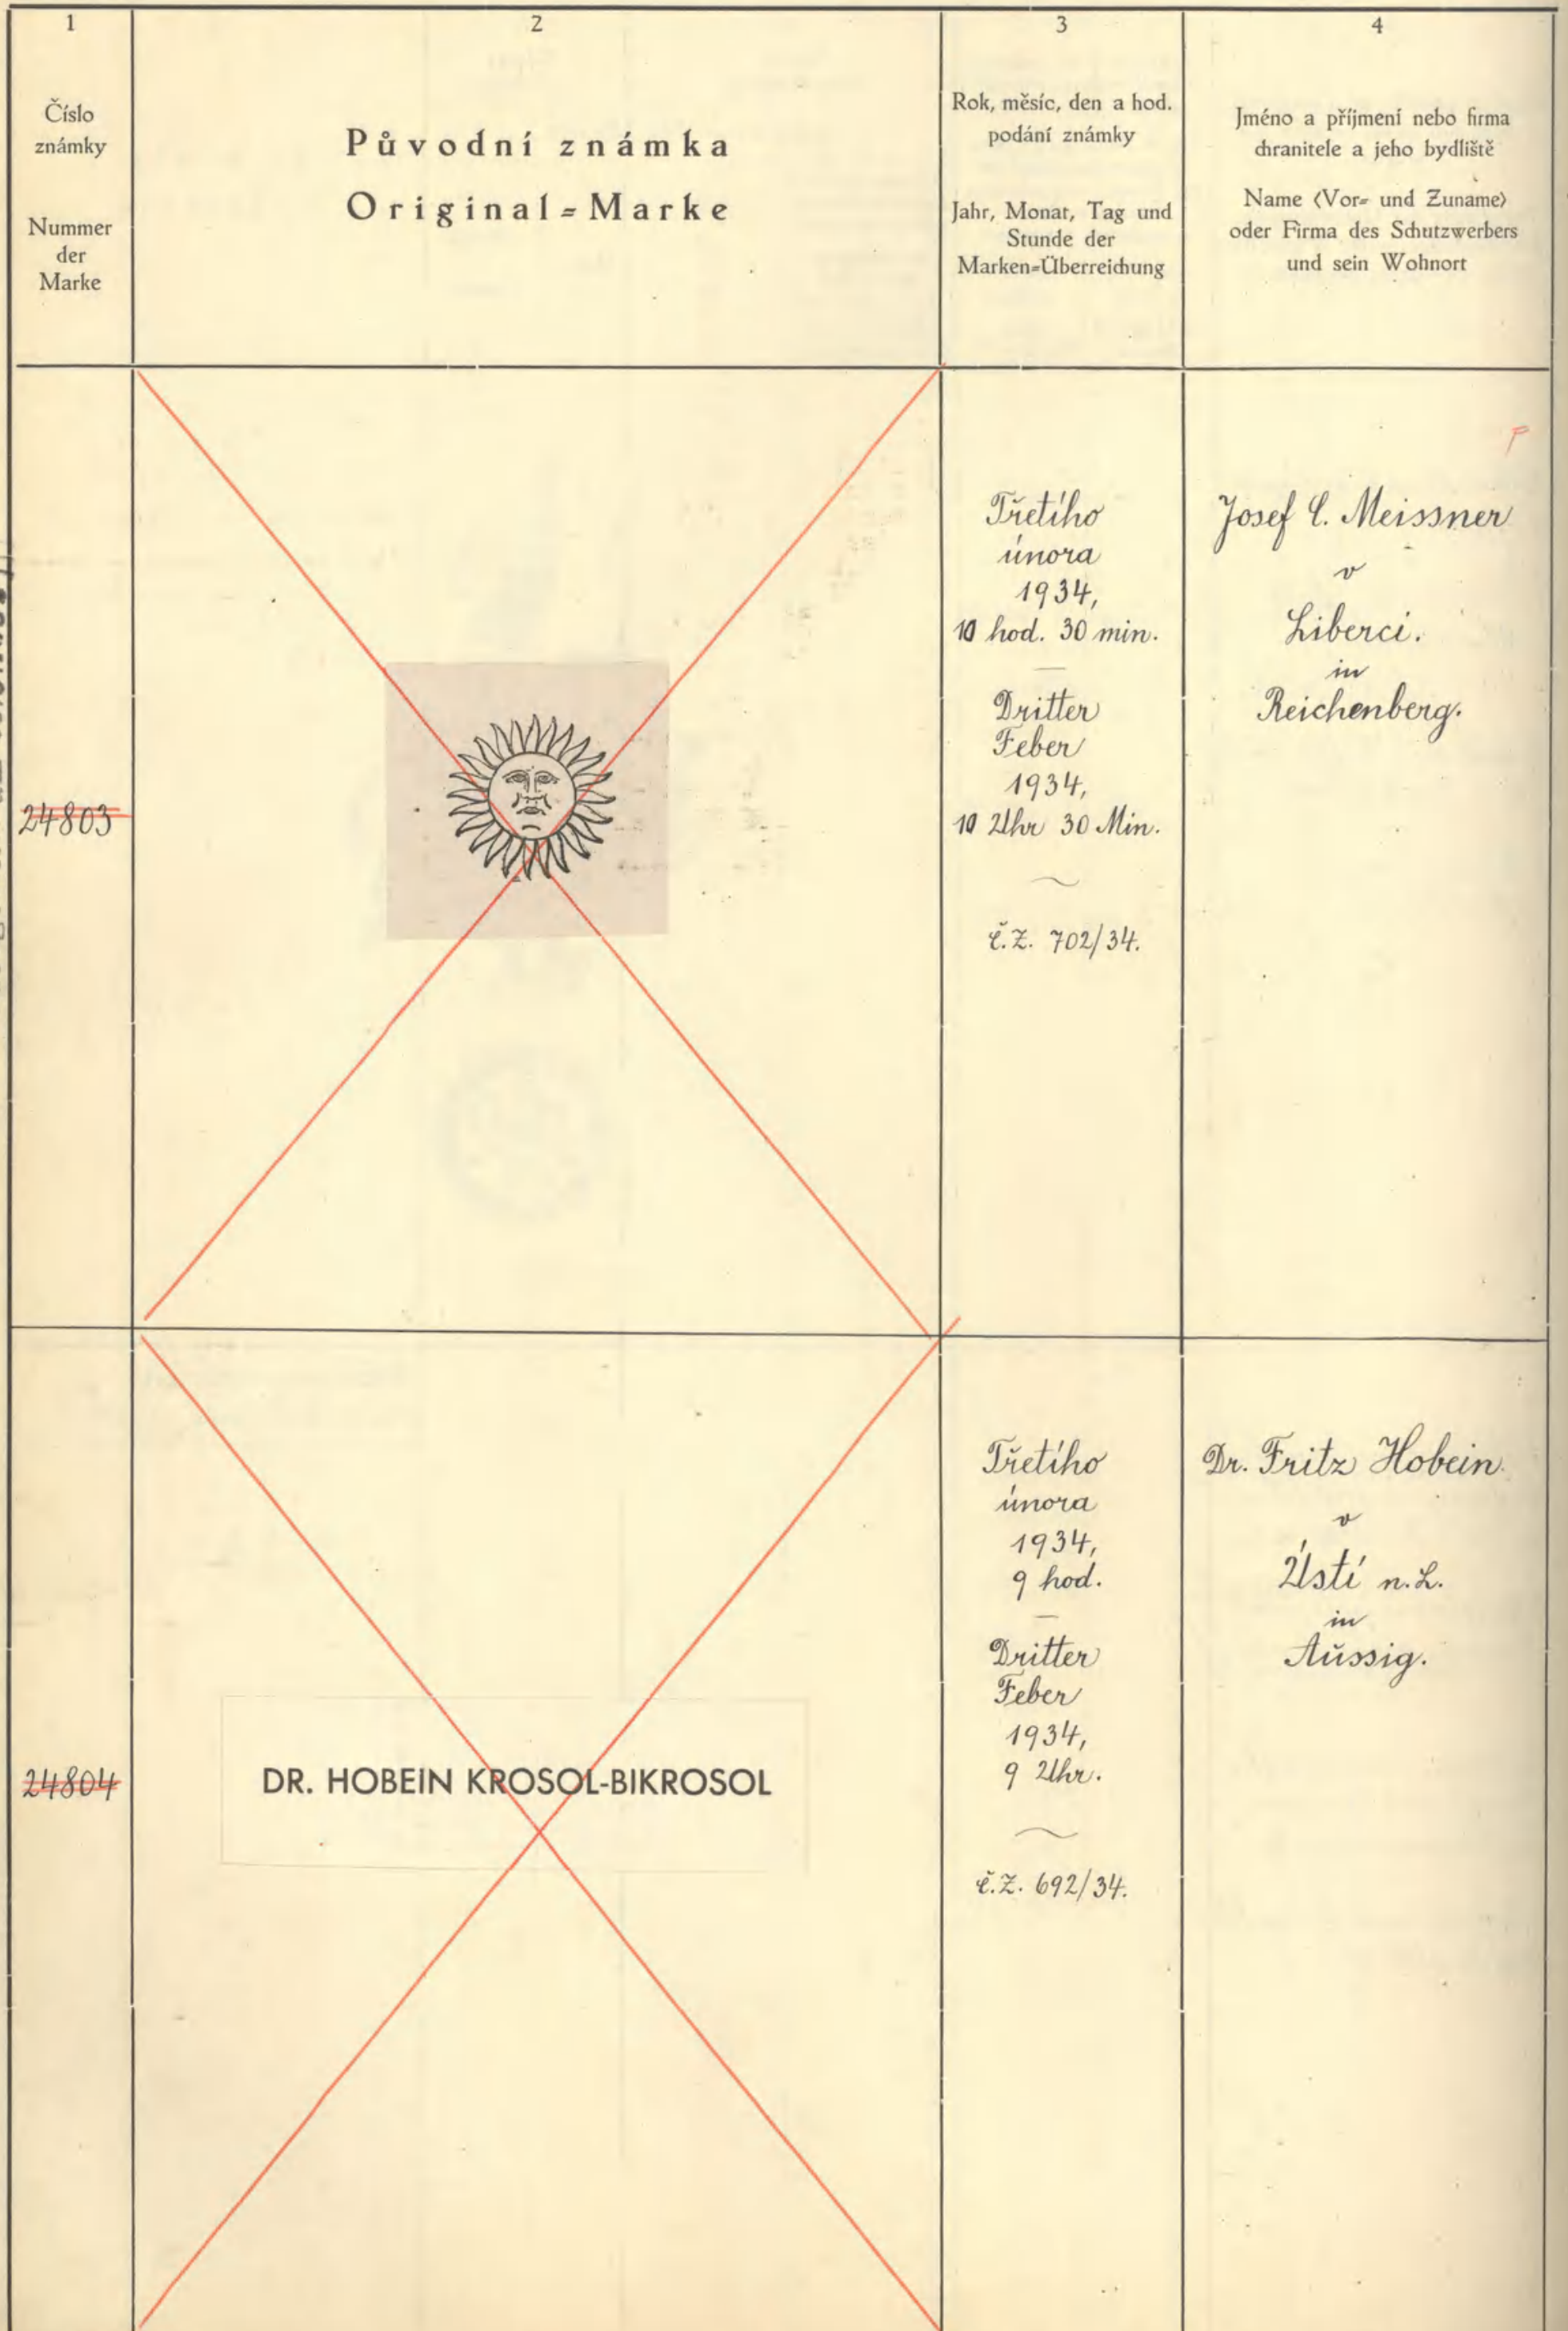 1
Číslo
známky
Nummer
der
Marke
2
Původní známka
Original=Marke
3
Rok, měsíc, den a hod.
podání známky
Jahr, Monat, Tag und
Stunde der
Marken=Überreichung
4
Jméno a příjmení nebo firma
chranitele a jeho bydliště
Name (Vor= und Zuname)
oder Firma des Schutzwerbers
und sein Wohnort
24803
Třetího
února
1934,
10 hod. 30 min.
Dritter
Feber
1934,
10 Uhr 30 Min.
č.ž. 702/34.
Josef C. Meissner
v
Liberci.
in
Reichenberg.
24804
DR. HOBEIN KROSOL-BIKROSOL
Třetího
února
1934,
9 hod.
Dritter
Feber
1934,
9 Uhr.
č.ž. 692/34.
Dr. Fritz Hobein
v
Ústí n.L.
in
Aussig.